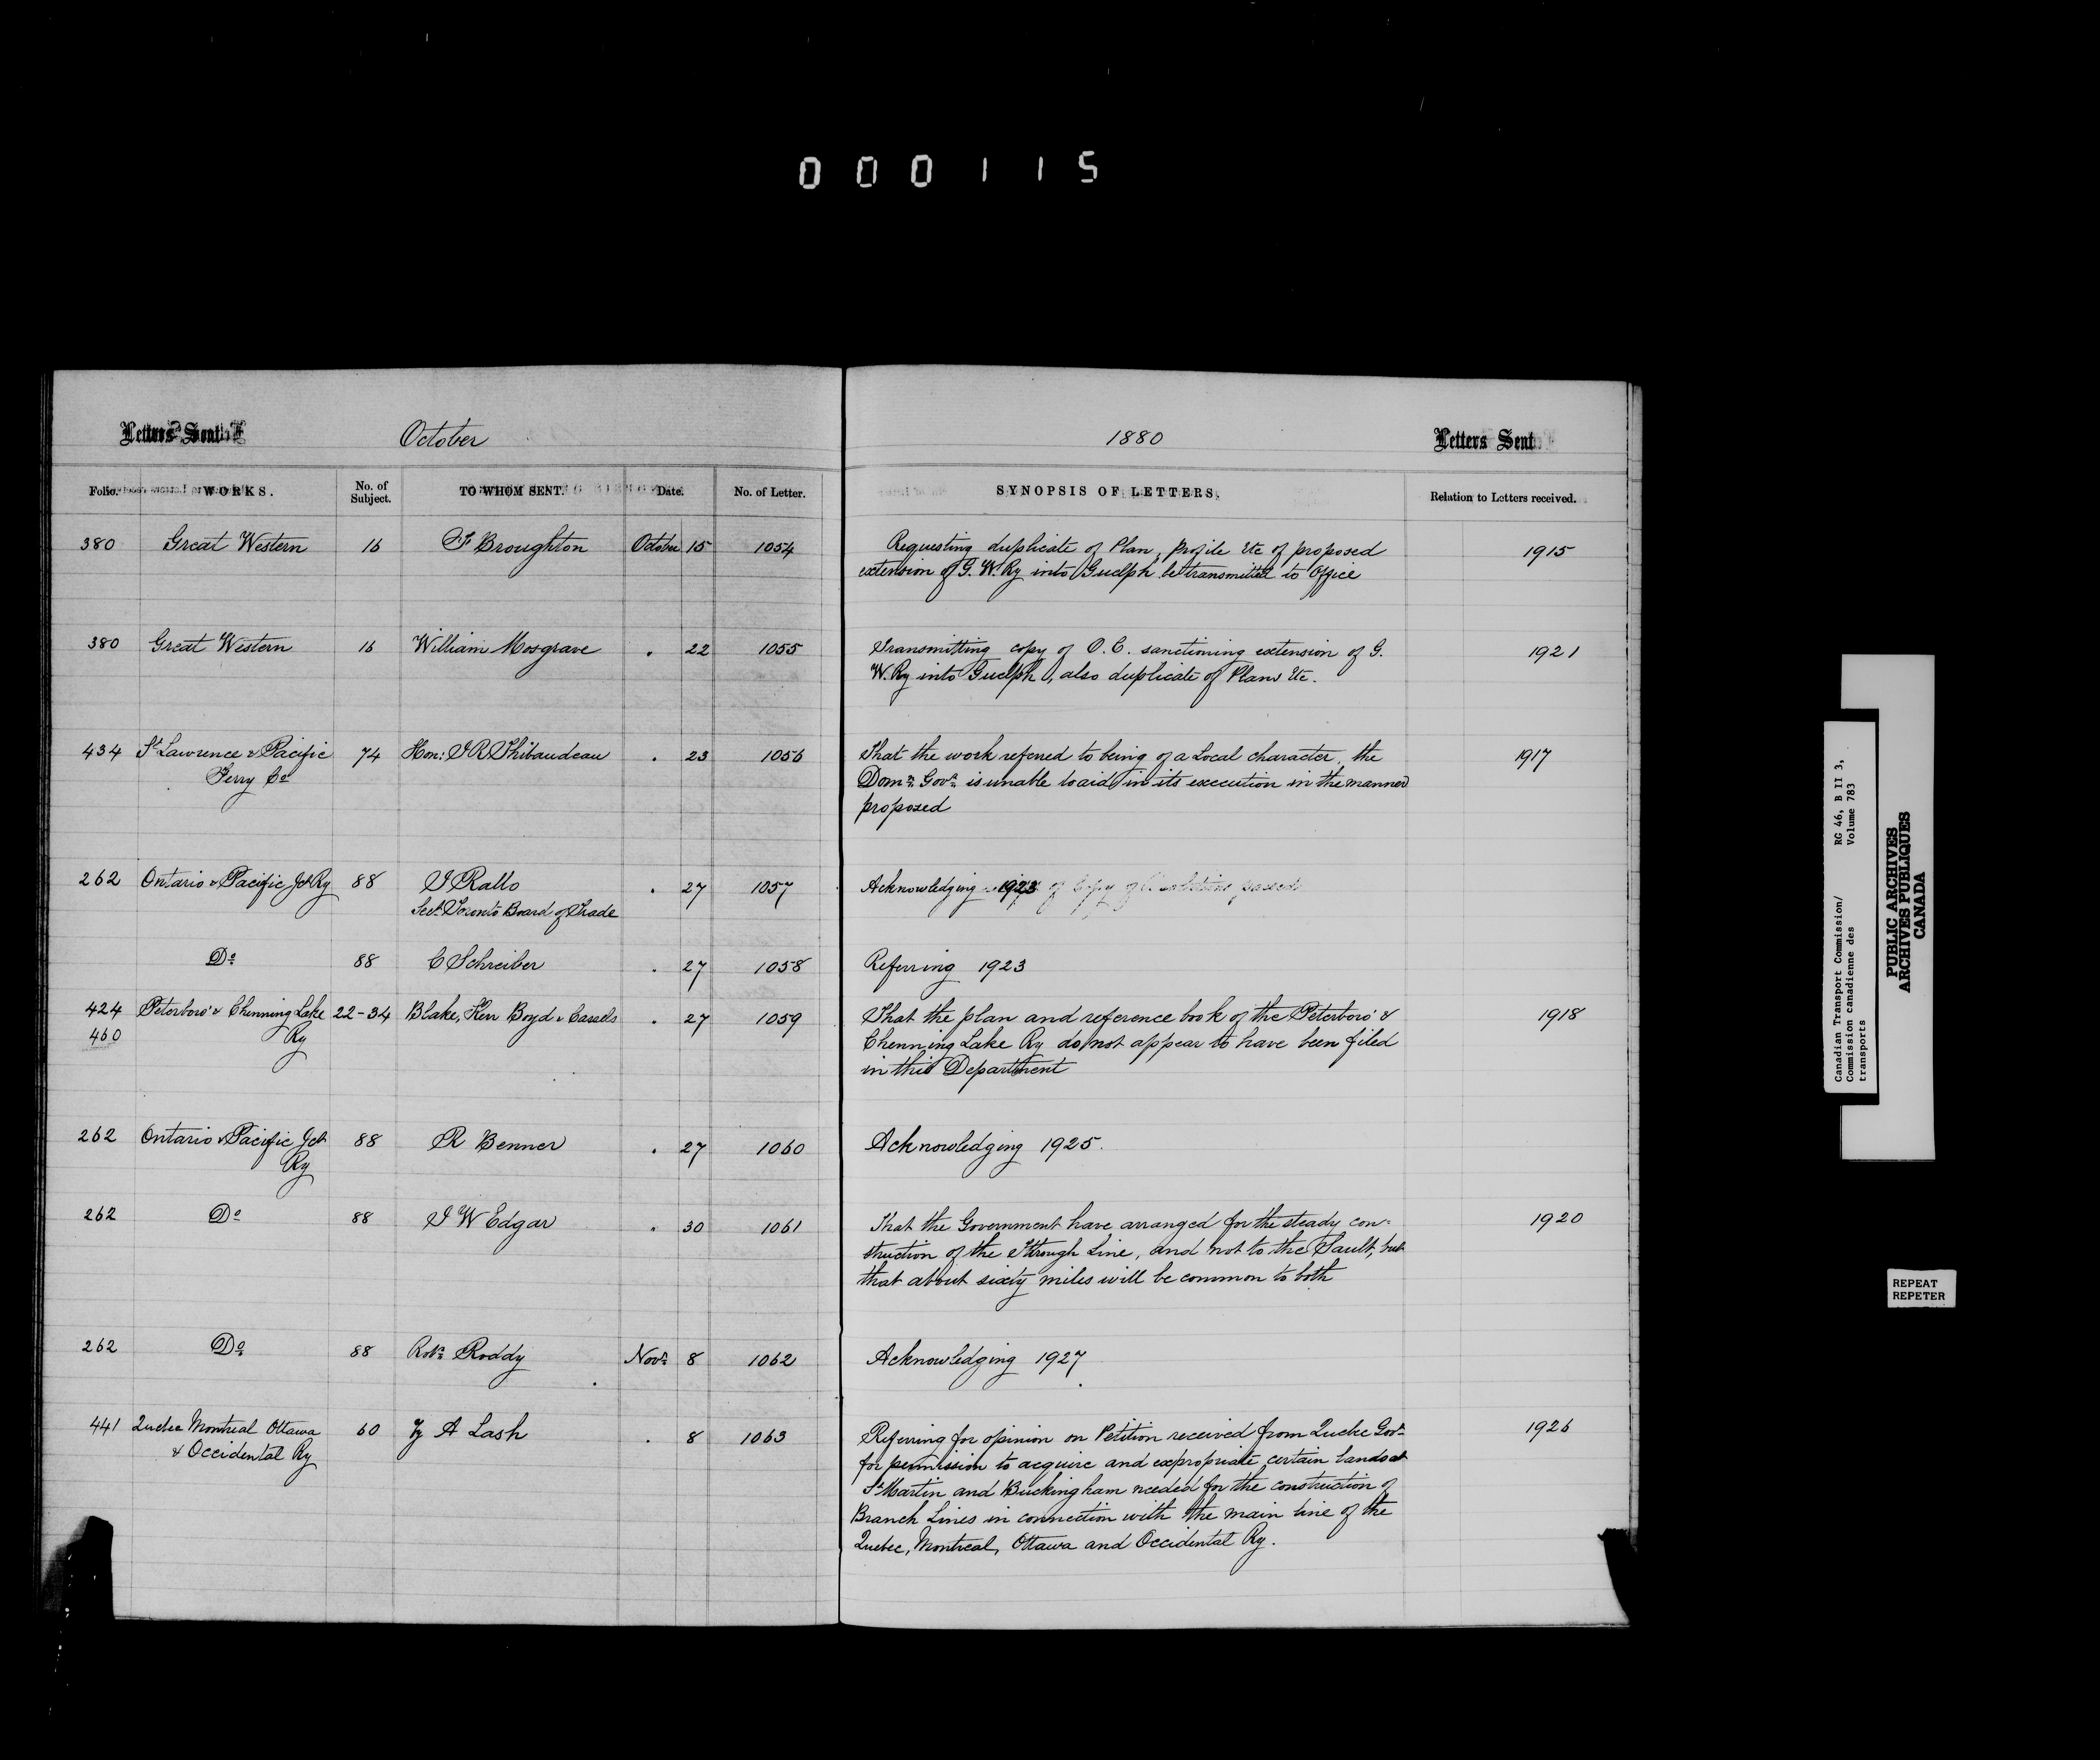 000115
Letters Sent October 1880 Letters Sent
Folio. WORKS. No. of Subject. TO WHOM SENT. Date. No. of Letter. SYNOPSIS OF LETTERS. Relation to Letters received.
380 Great Western 16 F Broughton October 15 1054 Requesting duplicate of Plan, profile &tc of proposed 1915
extension of G. W. Ry into Guelph be transmitted to Office
380 Great Western 16 William Mosgrave . 22 1055 Transmitting copy of O. C. sanctioning extension of G. 1921
W. Ry into Guelph, also duplicate of Plans &tc.
434 St Lawrence & Pacific 74 Hon: J R Thibaudeau . 23 1056 That the work referred to being of a Local character, the 1917
Ferry Co Domn Govt is unable to aid in its execution in the manner
proposed
262 Ontario & Pacific Jct Ry 88 . 27 1057 Acknowledging 1923
Secy Toronto Board of Trade
Do 88 C Schreiber . 27 1058 Referring 1923
424 Peterboro' & Chenning Lake 22-34 Blake, Kerr Boyd & Cassels . 27 1059 That the plan and reference book of the Peterboro' & 1918
460 Ry Chenning Lake Ry do not appear to have been filed
in this Department
262 Ontario & Pacific Jct 88 R Benner . 27 1060 Acknowledging 1925.
Ry
262 Do 88 J W Edgar . 30 1061 That the Government have arranged for the steady con- 1920
struction of the Through Line, and not to the Sault, but
that about sixty miles will be common to both
262 Do 88 Robt Roddy Novr 8 1062 Acknowledging 1927
441 Quebec Montreal Ottawa 60 Z A Lash . 8 1063 Referring for opinion on Petition received from Quebec Govt 1926
& Occidental Ry for permission to acquire and expropriate certain lands at
St Martin and Buckingham needed for the construction of
Branch Lines in connection with the main line of the
Quebec, Montreal, Ottawa and Occidental Ry.
Canadian Transport Commission/ RG 46, B II 3,
Commission canadienne des Volume 783
transports
PUBLIC ARCHIVES
ARCHIVES PUBLIQUES
CANADA
REPEAT
REPETER